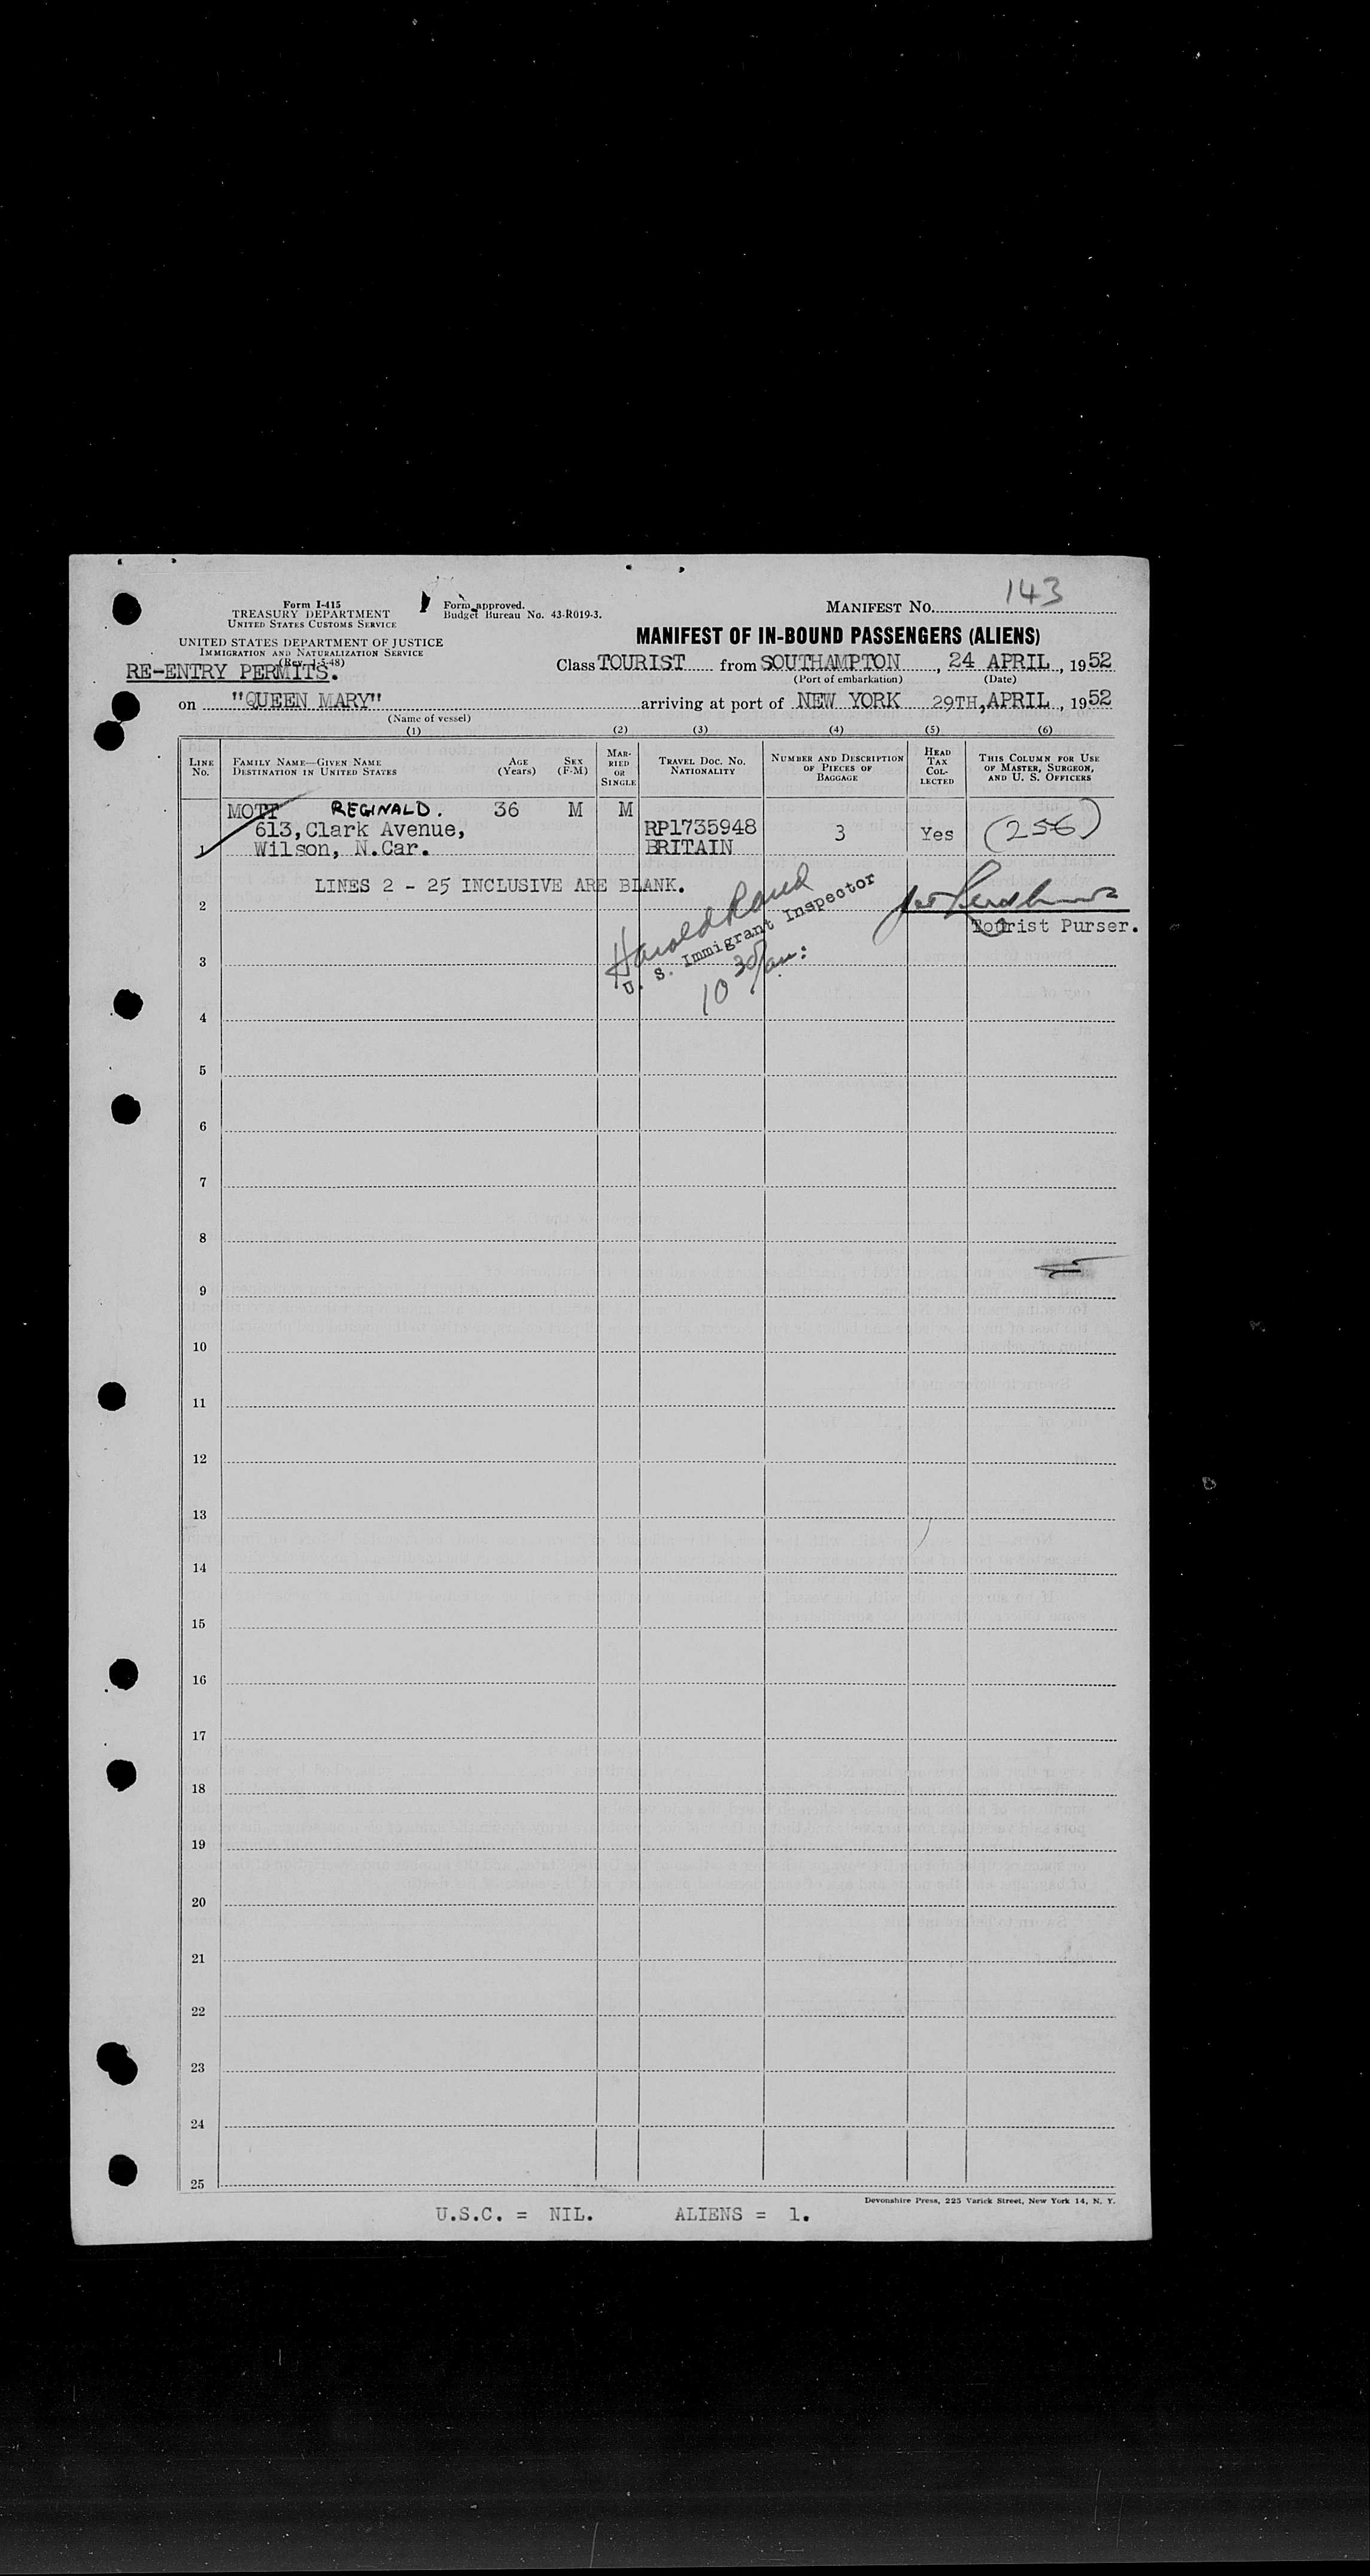 143
Form I-415
TREASURY DEPARTMENT
UNITED STATES CUSTOMS SERVICE
Form approved.
Budget Bureau No. 43-R019-3.
MANIFEST NO.
UNITED STATES DEPARTMENT OF JUSTICE
IMMIGRATION AND NATURALIZATION SERVICE
(Rev. 1-5-48)
MANIFEST OF IN-BOUND PASSENGERS (ALIENS)
RE-ENTRY PERMITS.
Class TOURIST from SOUTHAMPTON, 24 APRIL, 1952
(Port of embarkation) (Date)
on "QUEEN MARY" arriving at port of NEW YORK 29TH, APRIL, 1952
(Name of vessel)
(1) (2) (3) (4) (5) (6)
LINE NO. FAMILY NAME—GIVEN NAME DESTINATION IN UNITED STATES AGE (YEARS) SEX (F-M) MARRIED OR SINGLE TRAVEL DOC. NO. NATIONALITY NUMBER AND DESCRIPTION OF PIECES OF BAGGAGE HEAD TAX COLLECTED THIS COLUMN FOR USE OF MASTER, SURGEON, AND U. S. OFFICERS
MOTT REGINALD. 36 M M
613, Clark Avenue, RP1735948 3 Yes (256)
1 Wilson, N.Car. BRITAIN
LINES 2 - 25 INCLUSIVE ARE BLANK.
2
Tourist Purser.
Harold Rand
U. S. Immigrant Inspector
10 30 am:
3
4
5
6
7
8
9
10
11
12
13
14
15
16
17
18
19
20
21
22
23
24
25
Devonshire Press, 225 Varick Street, New York 14, N. Y.
U.S.C. = NIL. ALIENS = 1.